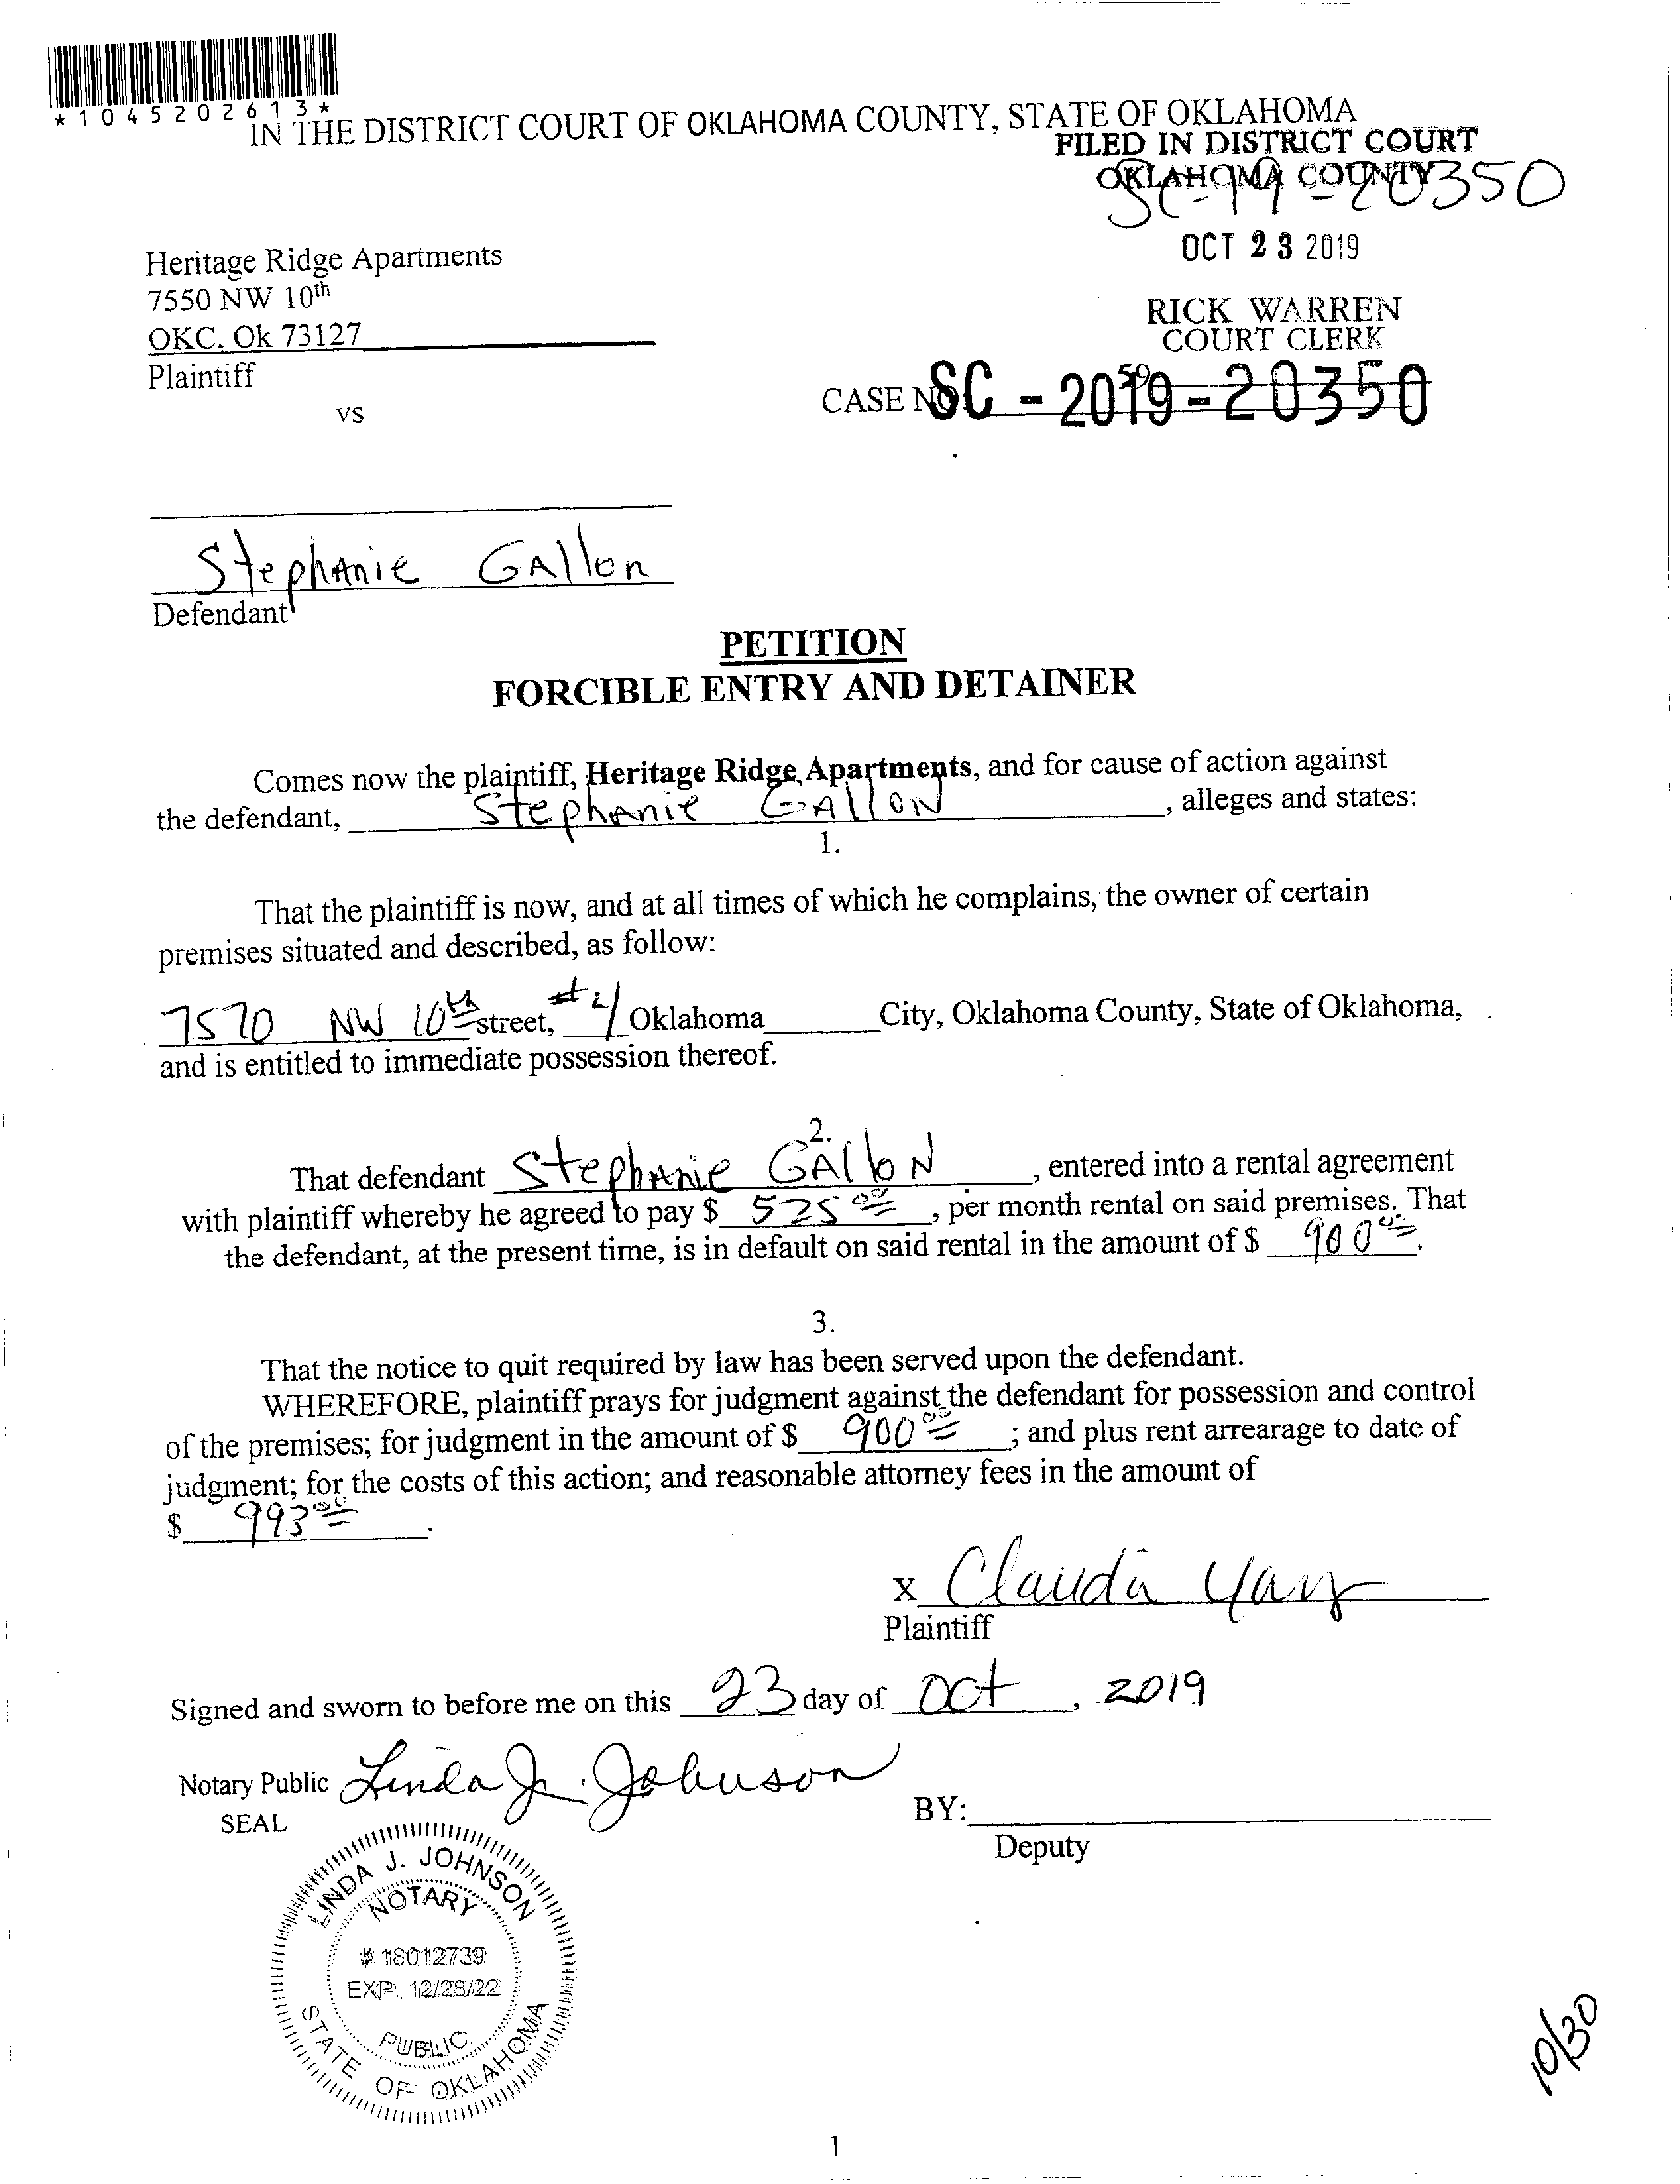 *1045202613*
IN THE DISTRICT COURT OF OKLAHOMA COUNTY, STATE OF OKLAHOMA
FILED IN DISTRICT COURT
OKLAHOMA COUNTY
SC-19-20350
OCT 23 2019
RICK WARREN
COURT CLERK
Heritage Ridge Apartments
7550 NW 10th
OKC. Ok 73127
Plaintiff
vs
CASE NO SC - 2019-20350
Stephanie Gallon
Defendant
PETITION
FORCIBLE ENTRY AND DETAINER
Comes now the plaintiff, Heritage Ridge Apartments, and for cause of action against
the defendant, Stephanie GAllON, alleges and states:
1.
That the plaintiff is now, and at all times of which he complains, the owner of certain
premises situated and described, as follow:
7570 NW 10th street, #4 Oklahoma City, Oklahoma County, State of Oklahoma,
and is entitled to immediate possession thereof.
2.
That defendant Stephanie GAlloN, entered into a rental agreement
with plaintiff whereby he agreed to pay $ 525 00, per month rental on said premises. That
the defendant, at the present time, is in default on said rental in the amount of $ 900 00.
3.
That the notice to quit required by law has been served upon the defendant.
WHEREFORE, plaintiff prays for judgment against the defendant for possession and control
of the premises; for judgment in the amount of $ 900 00 ; and plus rent arrearage to date of
judgment; for the costs of this action; and reasonable attorney fees in the amount of
$ 993 00.
x Claudia
Plaintiff
Signed and sworn to before me on this 23 day of Oct, 2019
Notary Public Linda J. Johnson
SEAL
BY:
Deputy
LINDA J. JOHNSON
NOTARY
# 18012739
EXP. 12/28/22
PUBLIC
STATE OF OKLAHOMA
10/30
1